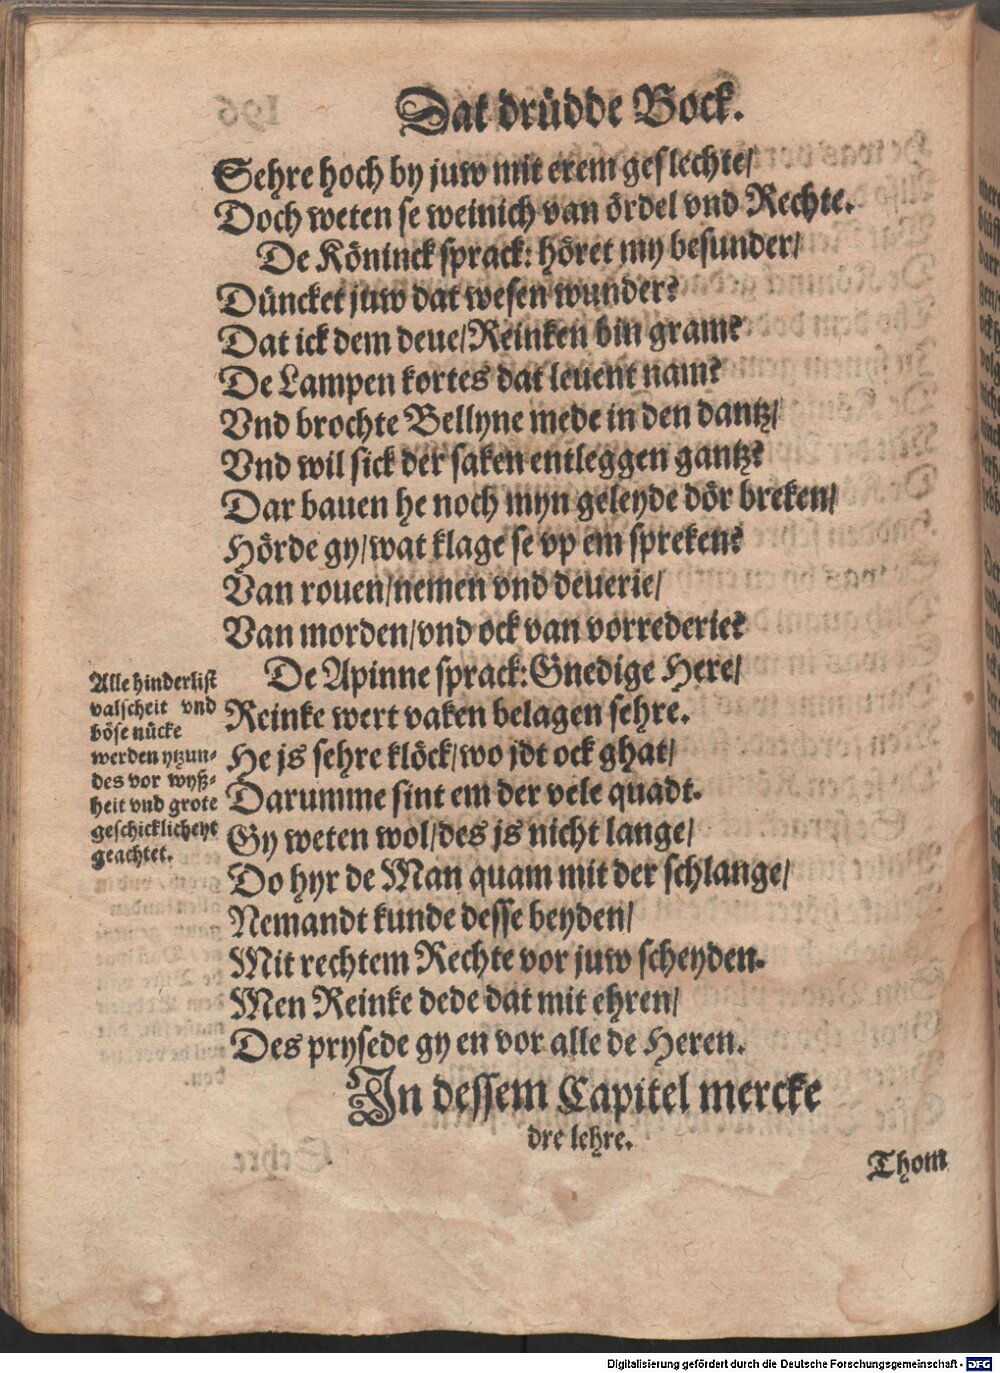 Dat drüdde Bock.
Sehre hoch by juw mit erem geslechte/
Doch weten se weinich van ördel vnd Rechte.
De Köninck sprack: höret my besunder/
Düncket juw dat wesen wunder?
Dat ick dem deue/Reinken bin gram?
De Lampen kortes dat leuent nam?
Vnd brochte Bellyne mede in den dantz/
Vnd wil sick der saken entleggen gantz?
Dar bauen he noch myn geleyde dör breken/
Hörde gy/wat klage se vp em spreken?
Van rouen/nemen vnd deuerie/
Van morden/vnd ock van vorrederie?
De Apinne sprack: Gnedige Here/
Reinke wert vaken belagen sehre.
He js sehre klöck/wo jdt ock ghat/
Darumme sint em der vele quadt.
Gy weten wol/des js nicht lange/
Do hyr de Man quam mit der schlange/
Nemandt kunde desse beyden/
Mit rechtem Rechte vor juw scheyden.
Men Reinke dede dat mit ehren/
Des prysede gy en vor alle de Heren.
Alle hinderlist
valscheit vnd
böse nücke
werden ytzun-
des vor wyß-
heit vnd grote
geschicklicheyt
geachtet.
In dessem Capitel mercke
dre lehre.
Thom
Digitalisierung gefördert durch die Deutsche Forschungsgemeinschaft - DFG